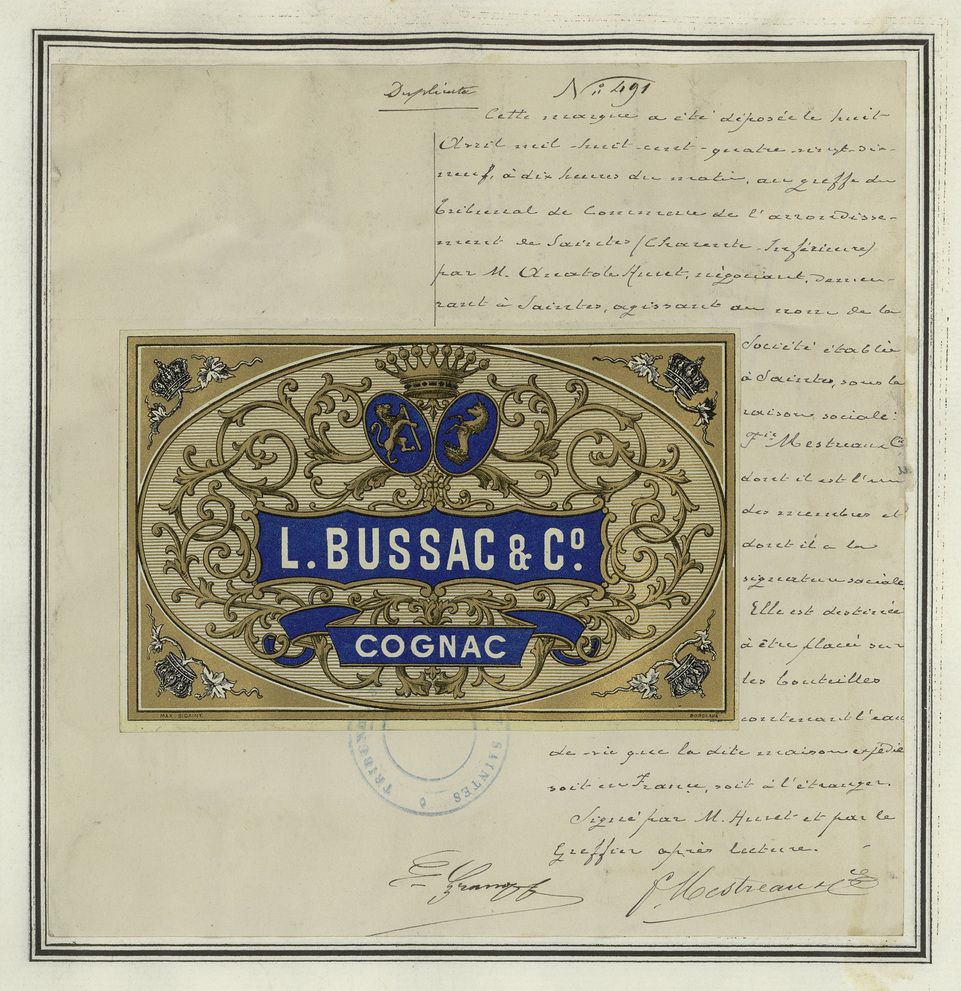 Duplicata
No 491
Cette marque a été déposée le huit
Avril mil-huit-cent-quatre-vingt-dix-
neuf, à dix heures du matin, au greffe du
Tribunal de Commerce de l'arrondisse-
ment de Saintes (Charente-Inférieure)
par M. Anatole Huret, négociant, demeu-
rant à Saintes, agissant au nom de la
Société établie
à Saintes, sous la
raison sociale:
Mestreau &
dont il est l'un
des membres et
dont il a la
signature sociale.
Elle est destinée
à être placée sur
les bouteilles
contenant l'eau
de-vie que la dite maison expédie
soit en France, soit à l'étranger.
Signé par M. Huret et par le
Greffier après lecture.
L. BUSSAC & Cº.
COGNAC
BORDEAUX
TRIBUN
SAINTES
Mestreau & Cie